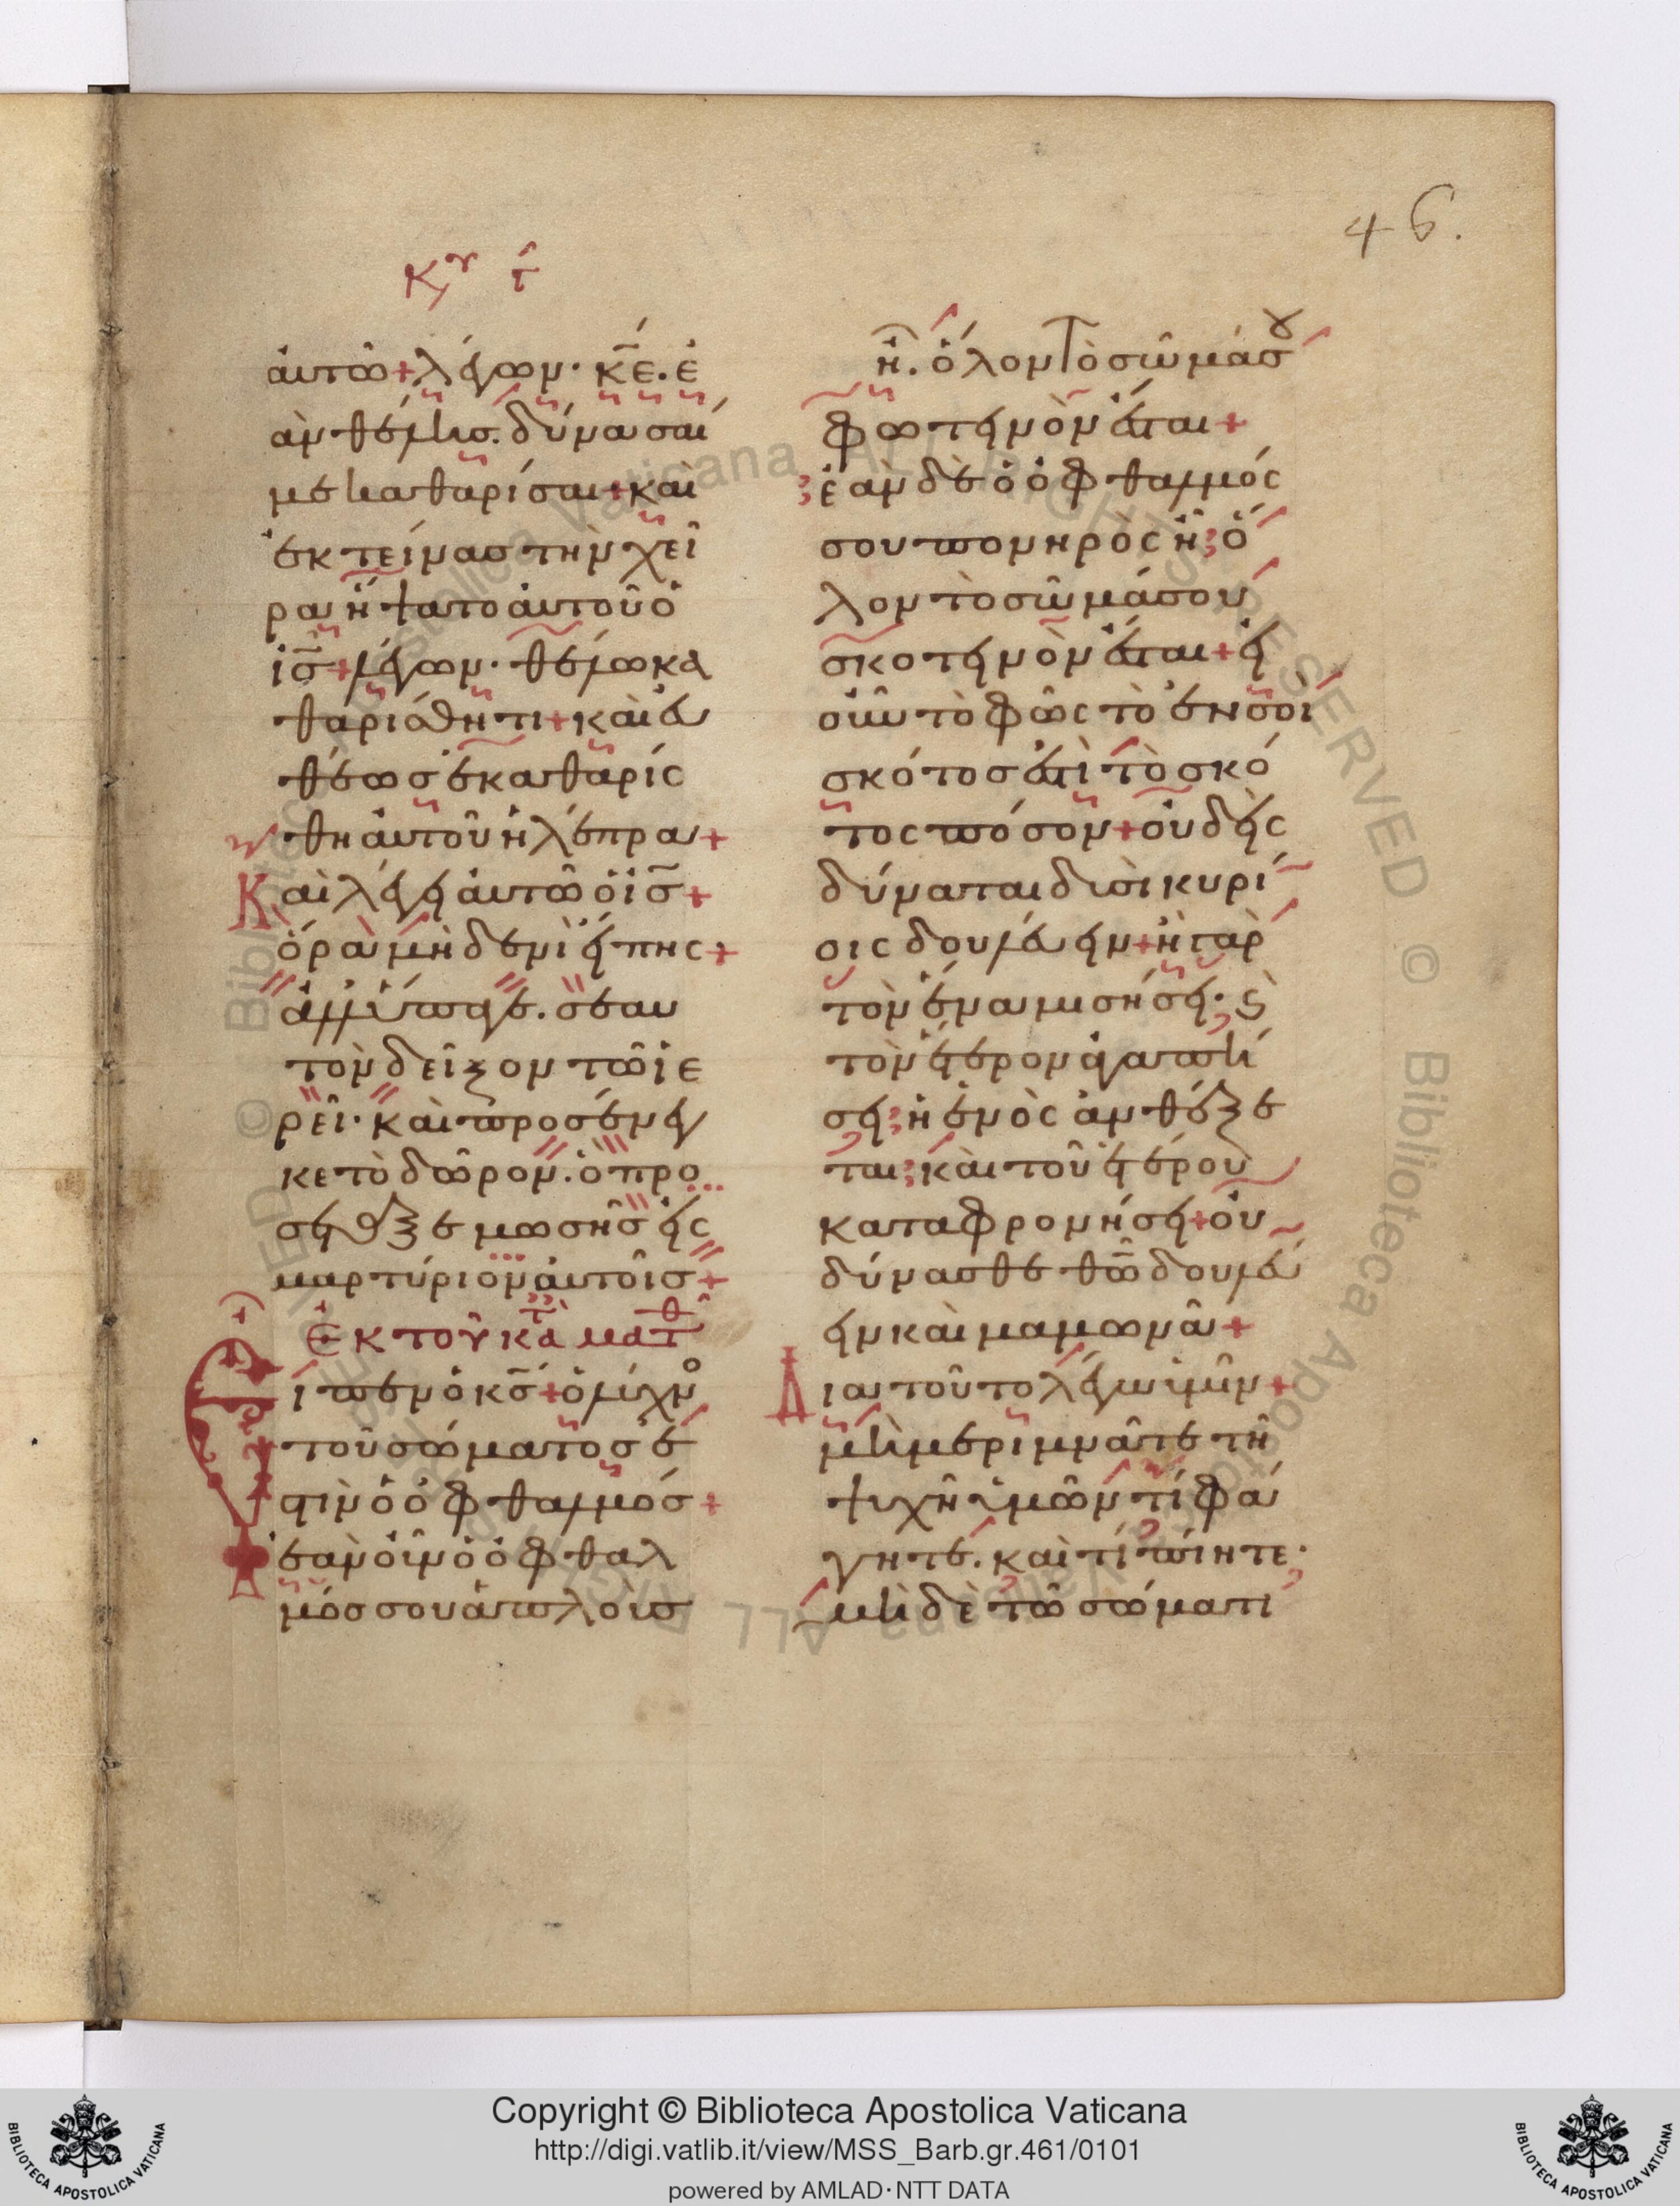 46.
Κυ γ
ἀυτῶ + λέγων · κ̅ε̅ · ἐ
ὰν θέλης. δύνασαί
με καθαρίσαι + καὶ
ἐκτείνας τὴν χεῖ
ρα ἥψατο ἀυτοῦ ὁ
ἰ̅ς̅ + λέγων · θέλω κα
θαρίσθητι + καὶ ἐυ
θέως ἐκαθαρίσ
θη ἀυτοῦ ἡ λέπρα +
Καὶ λέγει ἀυτῶ ὁ ἰ̅ς̅ +
ὅρα μὴδενὶ εἴπης +
ἀλλ' ὕπαγε. σεαυ
τὸν δεῖξον τῶ ἱε
ρεῖ · καὶ προσένεγ
κε τὸ δῶρον. ὃ προ
σέταξε μωσῆς εἰς
μαρτύριον ἀυτοῖς +
Ἐκ τοῦ κατὰ ματθ
Εἶπεν ὁ κ̅ς̅ + ὁ λύχνο
τοῦ σώματος ἐ
στὶν ὁ ὀφθαλμός +
ἐὰν οὖν ὁ ὀφθαλ
μός σου ἁπλοῦς
ἦ. ὅλον τὸ σῶμά σου
φωτεινὸν ἔσται +
ἐὰν δὲ ὁ ὀφθαλμός
σου πονηρὸς ἦ ὅ
λον τὸ σῶμά σου
σκοτεινὸν ἔσται + εἰ
οὖν τὸ φῶς τὸ ἐν σοὶ
σκότος ἐστὶ τὸ σκό
τος πόσον + ὀυδεὶς
δύναται δυσὶ κυρί
οις δουλεύειν + ἢ γὰρ
τὸν ἕνα μισήσει · καὶ
τὸν ἕτερον ἀγαπή
σει ἢ ἑνὸς ἀνθέξε
ται καὶ τοῦ ἑτέρου
καταφρονήσει + ὀυ
δύνασθε θ̅ῶ̅ δουλεύ
ειν καὶ μαμωνᾶ +
Δια τοῦτο λέγω ὑμῖν +
μὴ μεριμνᾶτε τῆ
ψυχῆ ὑμῶν τί φά
γητε. καὶ τί πίητε ·
μὴ δὲ τῶ σώματι
Copyright © Biblioteca Apostolica Vaticana
http://digi.vatlib.it/view/MSS_Barb.gr.461/0101
powered by AMLAD·NTT DATA